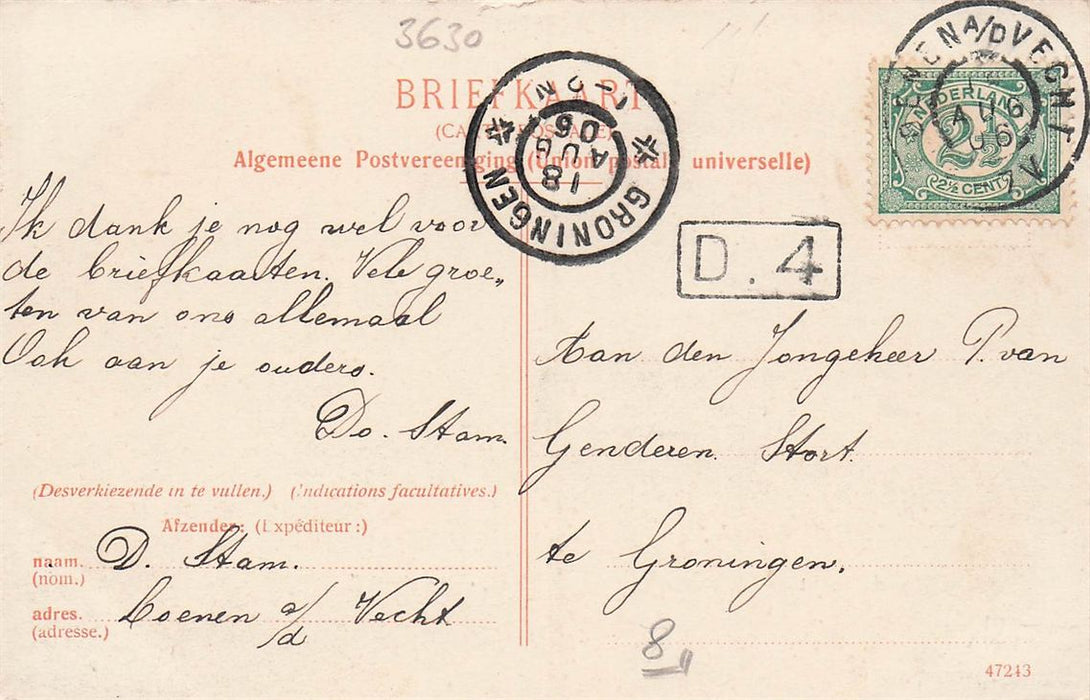 3630
BRIEFKAART
(CARTE POSTALE)
Algemeene Postvereeniging (Union postale universelle)
GRONINGEN
18
AUG
06
NEDERLAND
2½
2½ CENT
D.4
Ik dank je nog wel voor
de briefkaarten. Vele groe„
ten van ons allemaal
Ook aan je ouders.
Do. Stam.
Aan den Jongeheer P. van
Genderen Stort.
te Groningen.
(Desverkiezende in te vullen.) (Indications facultatives.)
Afzender: (Expéditeur:)
naam. D. Stam.
(nom.)
adres. Loenen a/d Vecht
(adresse.)
8„
47243